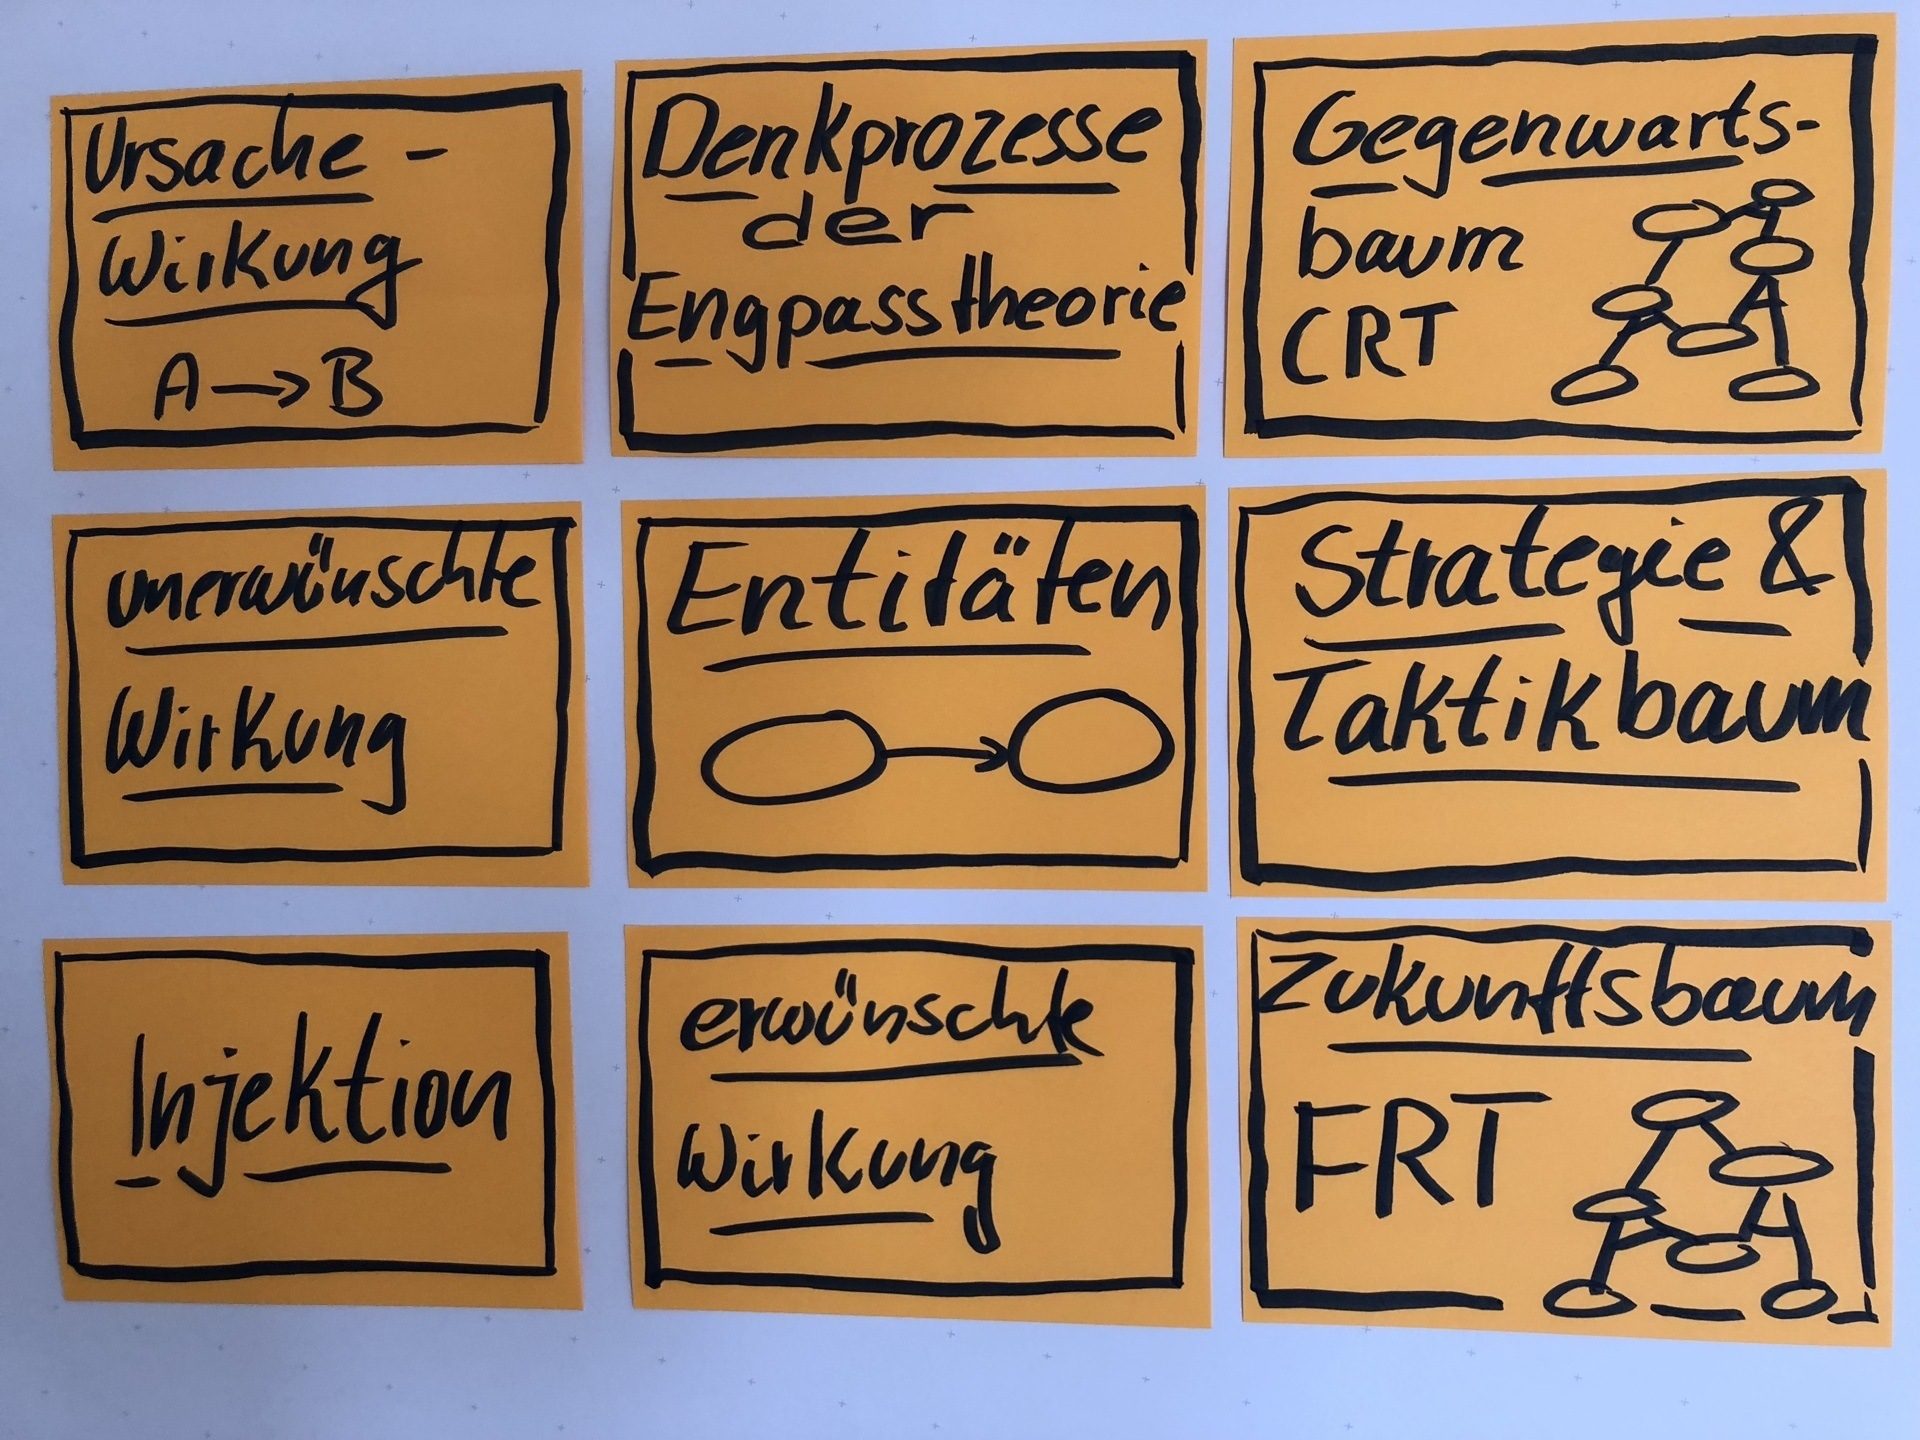 Ursache -
Wirkung
A → B
Denkprozesse
der
Engpasstheorie
Gegenwarts-
baum
CRT
unerwünschte
Wirkung
Entitäten
Strategie &
Taktikbaum
Injektion
erwünschte
Wirkung
Zukunftsbaum
FRT